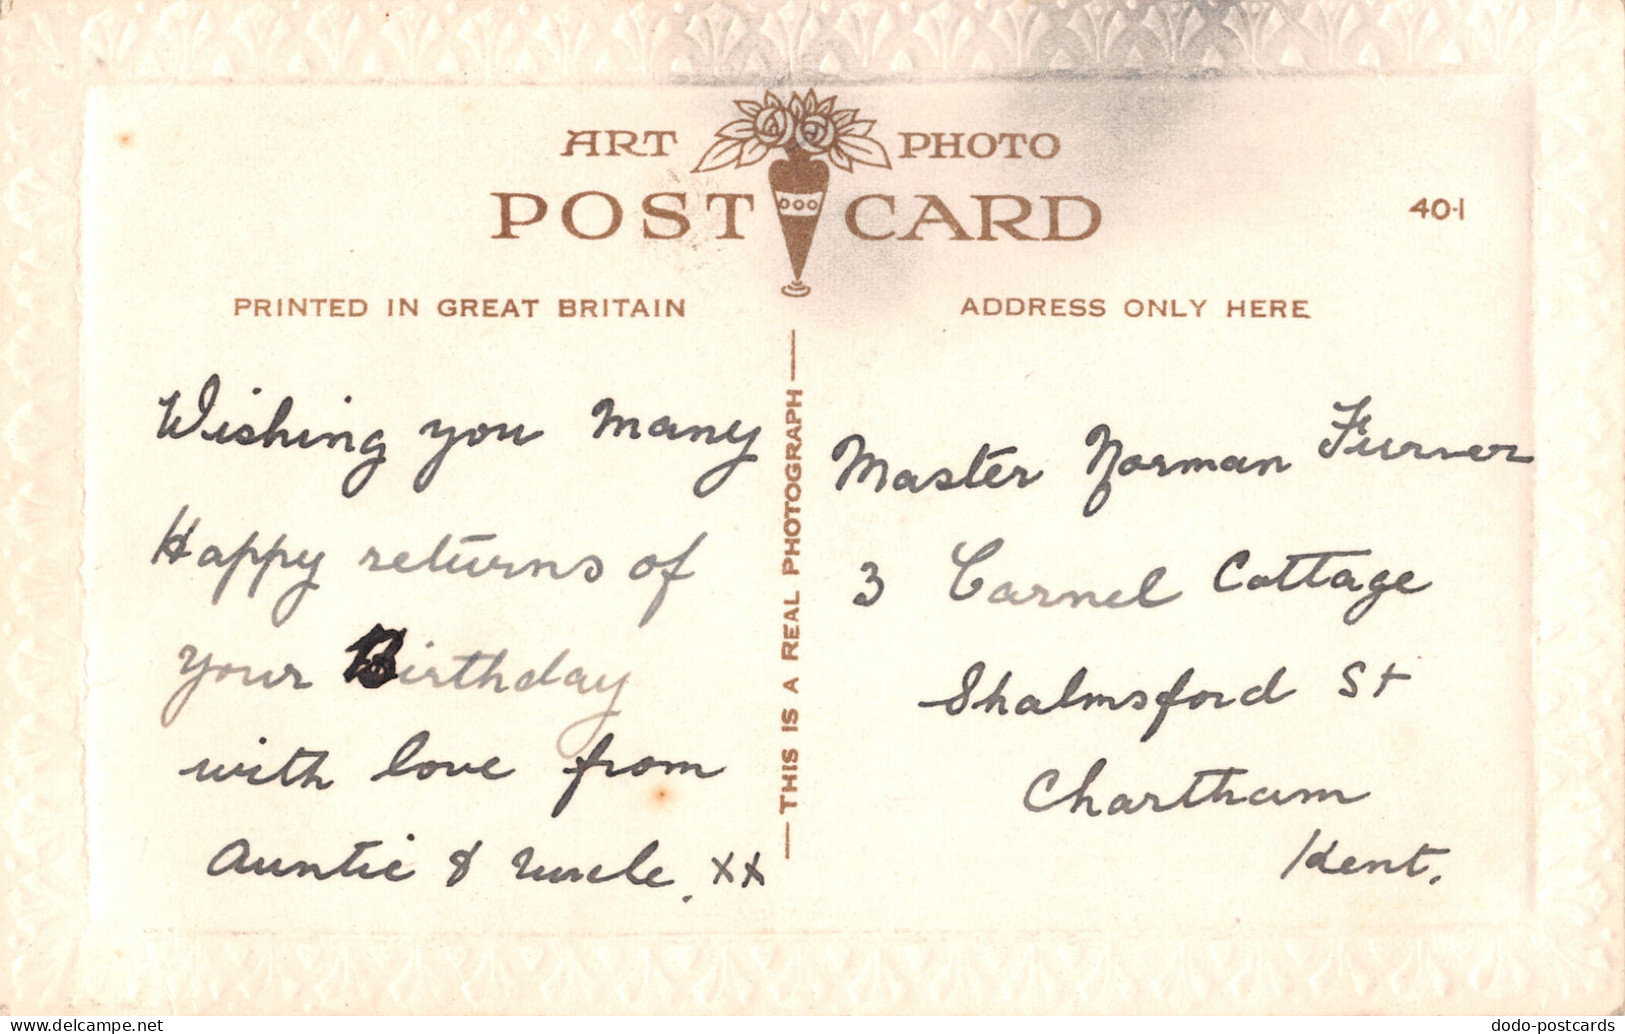 ART PHOTO
POST CARD
40-1
PRINTED IN GREAT BRITAIN
ADDRESS ONLY HERE
Wishing you many
Happy returns of
your Birthday
with love from
Auntie & Uncle. xx
THIS IS A REAL PHOTOGRAPH
Master Norman Furner
3 Carnel Cottage
Shalmsford St
Chartham
Kent.
delcampe.net
dodo-postcards